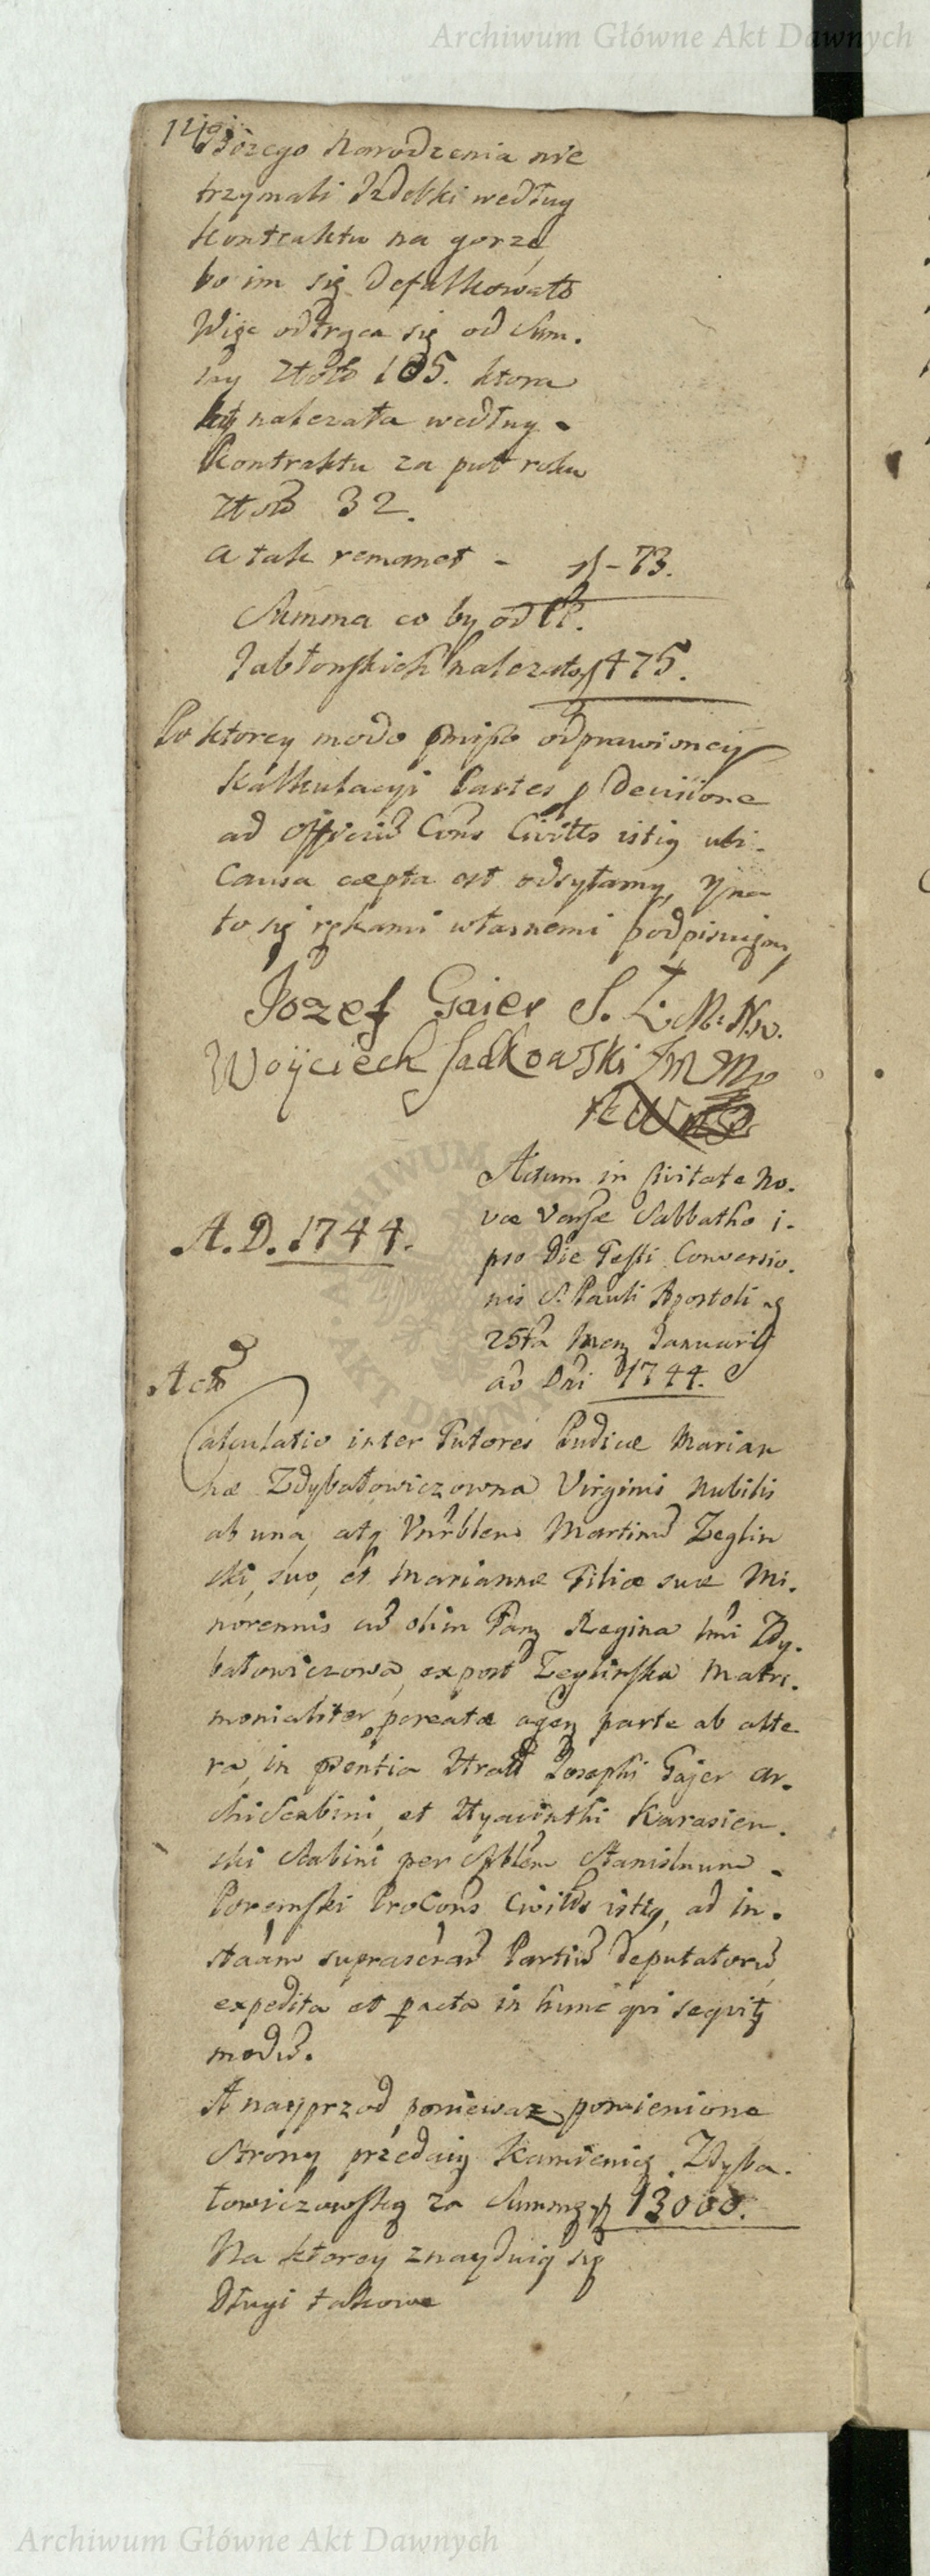 Archiwum Główne Akt Dawnych
Bożego Narodzenia nie
trzymali Izdebki według
Kontraktu na gorze
bo im się defalkowało
Więc odtrąca się od Sum.
my Złoto 105. ktora
należała według
Kontraktu za puł roku
Złoto 32.
a tak remanet - zł - 73.
Summa co by od PP.
Jabłonskich należało zł 475.
Po ktorey modo pmisso odprawioney
Kalkulacyi Partes p Decisione
ad Officiu Cons Civitts istig ubi
Causa cæpta est odsyłamy, y na
to się rękami własnemi podpisujem
Jozef Gaier S. L. M. Nw.
Woyciech Sadkowski
Actum in Civitate No.
væ Varsæ Sabbatho i.
pso Die Festi Conversio.
nis S. Pauli Apostoli
25ta Men Januarij
A. D. 1744.
ao Dni 1744.
Calculatio inter Tutores Pudicæ Marian
næ Zdybałowiczowna Virginis Nubilis
ab una, atq Martinu Zeglin
ski, suo, et Mariannæ Filiæ suæ Mi.
norennis cu olim Regina Zdy.
bałowiczowa, expost Zeglinska Matri.
monialiter pcreatæ agen parte ab alte
ra, in psentia Josephi Gajer Ar.
chiScabini, et Hyacinthi Karasien.
ski Scabini per Stanislaum
Poremski ProCons Civitts istig, ad in.
staam suprascrau Partiu deputatoru
expedita et pacta in hunc qui sequitg
modu.
A nayprzod poniewaz pomienione
Strony przedaią Kamienicę Zdyba.
łowiczowską za Summę zł 13000.
Na ktorey znayduią się
Długi takowe
Archiwum Główne Akt Dawnych